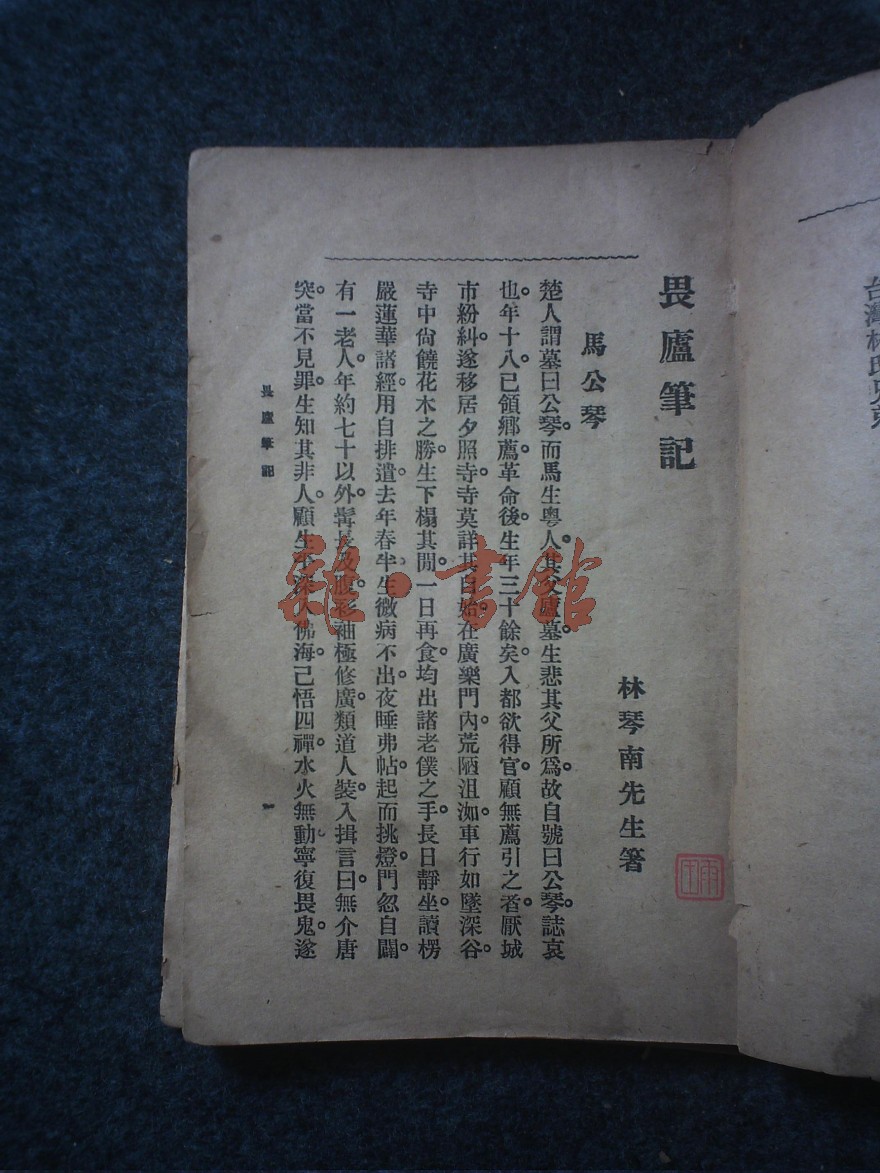 台灣林氏兄弟
畏廬筆記
林琴南先生箸
馬公琴
楚人謂墓曰公琴。而馬生粵人。其父廬墓。生悲其父所爲。故自號曰公琴。誌哀
也。年十八。已領鄉薦。革命後。生年三十餘矣。入都欲得官。顧無薦引之者。厭城
市紛糾。遂移居夕照寺。寺莫詳其自始。在廣樂門內。荒陋沮洳。車行如墜深谷。
寺中尙饒花木之勝。生下榻其閒。一日再食。均出諸老僕之手。長日靜坐。讀楞
嚴蓮華諸經。用自排遣。去年春半。生微病不出。夜睡弗帖。起而挑燈。門忽自闢。
有一老人。年約七十以外。髯長及腹。衫袖極修廣。類道人裝。入揖言曰。無介唐
突。當不見罪。生知其非人。顧生平深入佛海。己悟四禪。水火無動。寧復畏鬼。遂
畏廬筆記
一
雜·書館